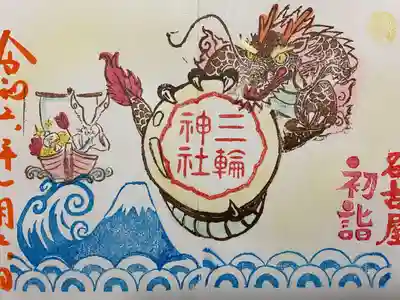 名古屋
初詣
三輪
神社
令和六年一月